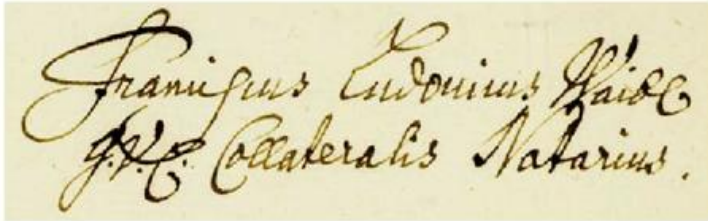 Franciscus Ludovicus
J.V.C. Collateralis Notarius.